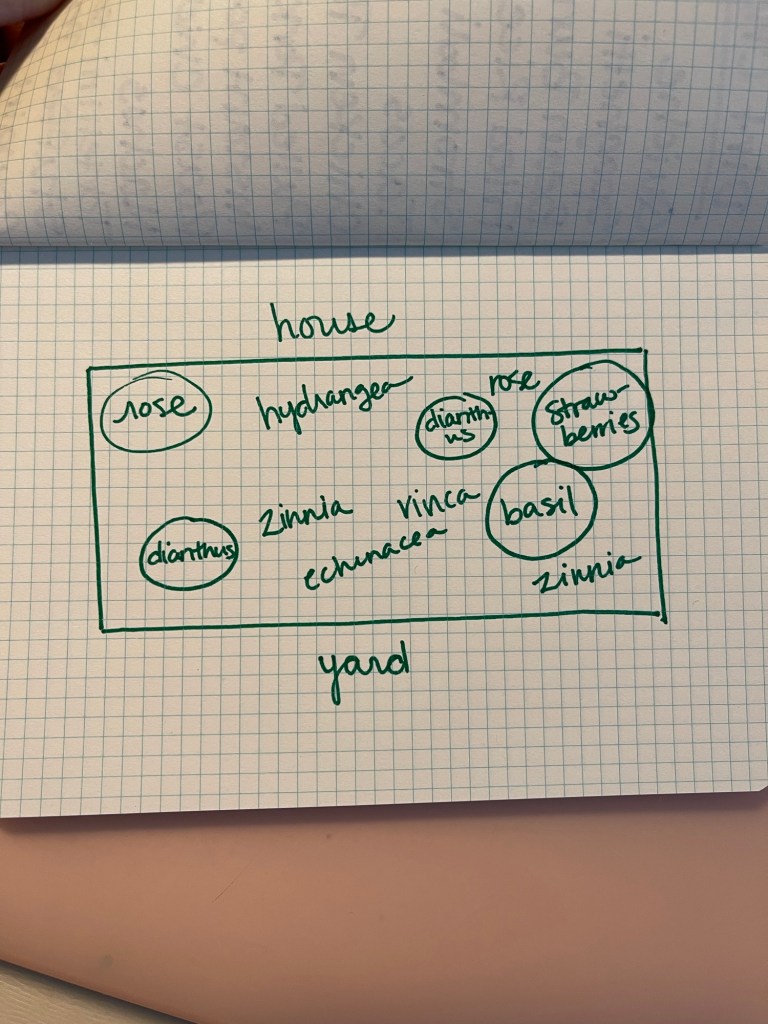 house
rose
hydrangea
dianth-
us
rose
Straw-
berries
zinnia
vinca
basil
dianthus
echinacea
zinnia
yard